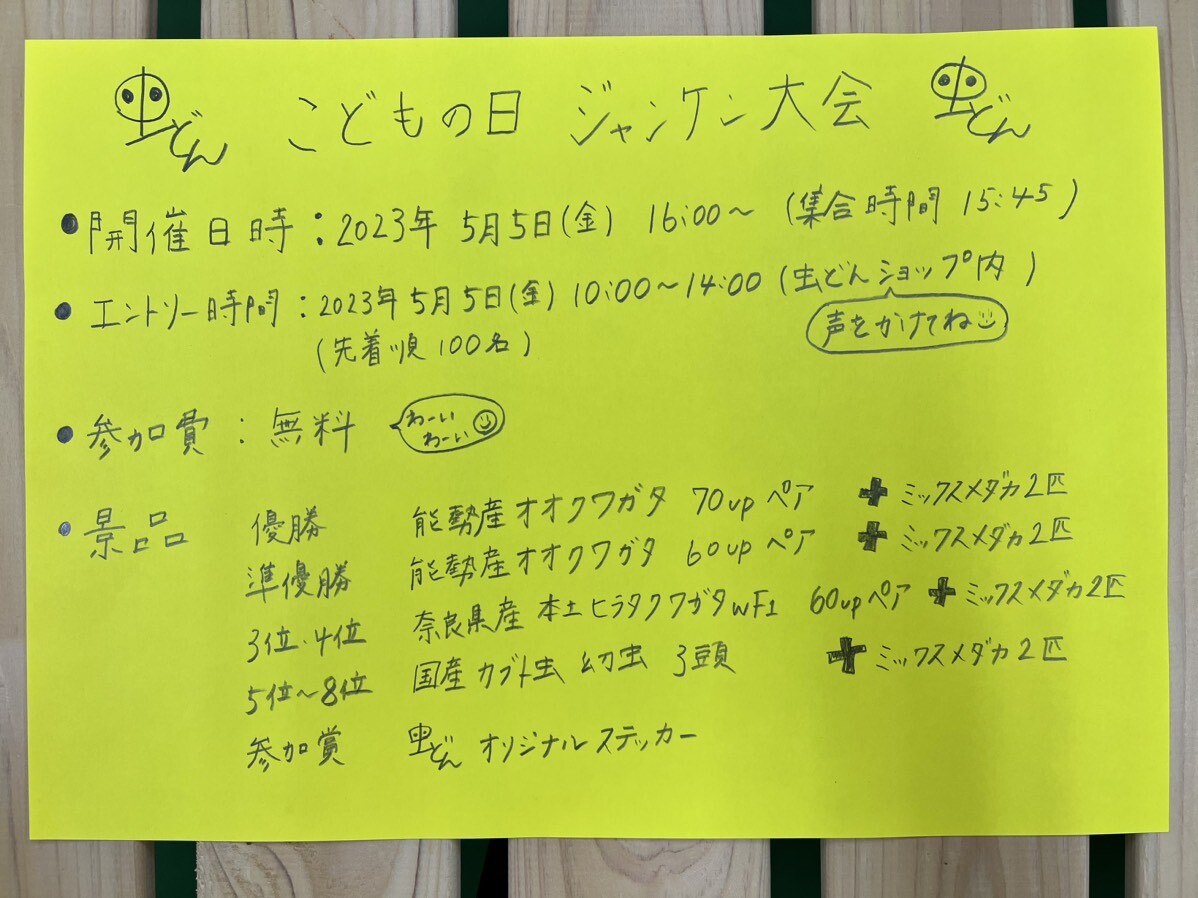 虫どん こどもの日 ジャンケン大会 虫どん
● 開催日時：2023年 5月5日(金) 16:00～ (集合時間 15:45)
● エントリー時間：2023年5月5日(金) 10:00～14:00 (虫どんショップ内)
(先着順 100名)
声をかけてね
● 参加費：無料
わーい
わーい
● 景品 優勝 能勢産オオクワガタ 70up ペア ＋ ミックスメダカ2匹
準優勝 能勢産オオクワガタ 60up ペア ＋ ミックスメダカ2匹
3位・4位 奈良県産 本土ヒラタクワガタWF1 60upペア ＋ ミックスメダカ2匹
5位～8位 国産カブト虫 幼虫 3頭 ＋ ミックスメダカ2匹
参加賞 虫どん オリジナルステッカー